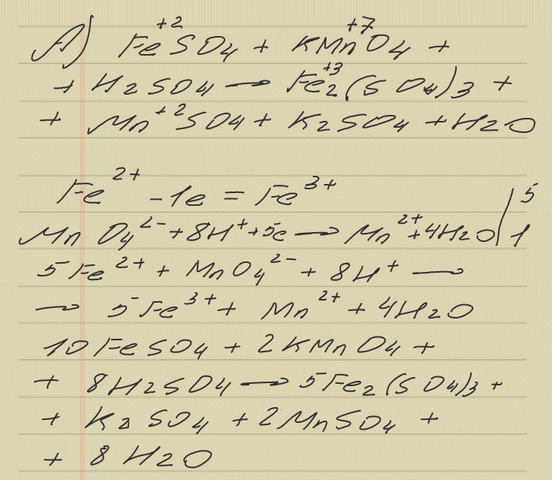 А) Fe⁺²SO₄ + KMn⁺⁷O₄ +
+ H₂SO₄ → Fe₂⁺³(SO₄)₃ +
+ Mn⁺²SO₄ + K₂SO₄ + H₂O
Fe²⁺ - 1e = Fe³⁺ | 5
MnO₄²⁻ + 8H⁺ + 5e → Mn²⁺ + 4H₂O | 1
5Fe²⁺ + MnO₄²⁻ + 8H⁺ →
→ 5Fe³⁺ + Mn²⁺ + 4H₂O
10FeSO₄ + 2KMnO₄ +
+ 8H₂SO₄ → 5Fe₂(SO₄)₃ +
+ K₂SO₄ + 2MnSO₄ +
+ 8H₂O